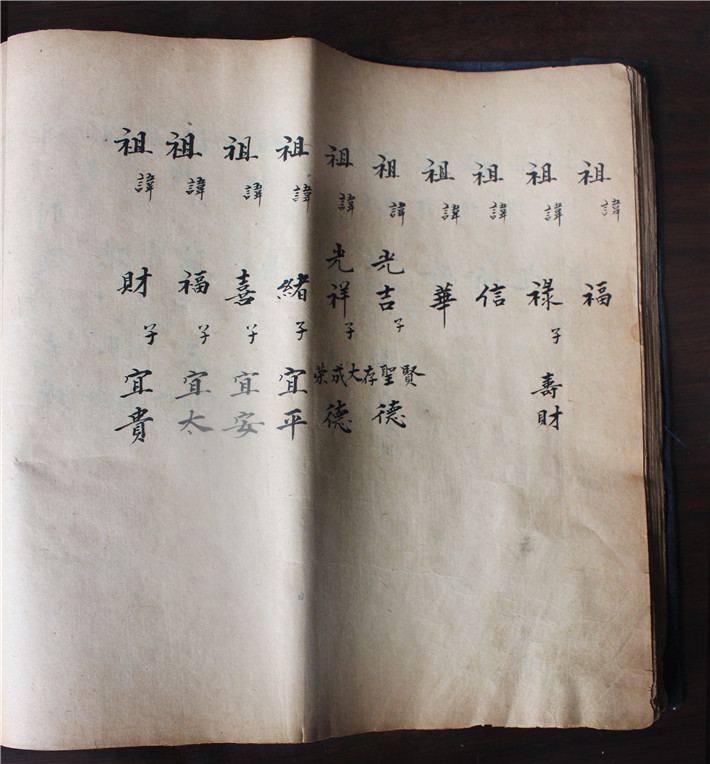 祖諱福
祖諱祿子壽財
祖諱信
祖諱華
祖諱光吉子賢聖存德
祖諱光祥子大成荣德
祖諱緒子宜平
祖諱喜子宜安
祖諱福子宜太
祖諱財子宜貴